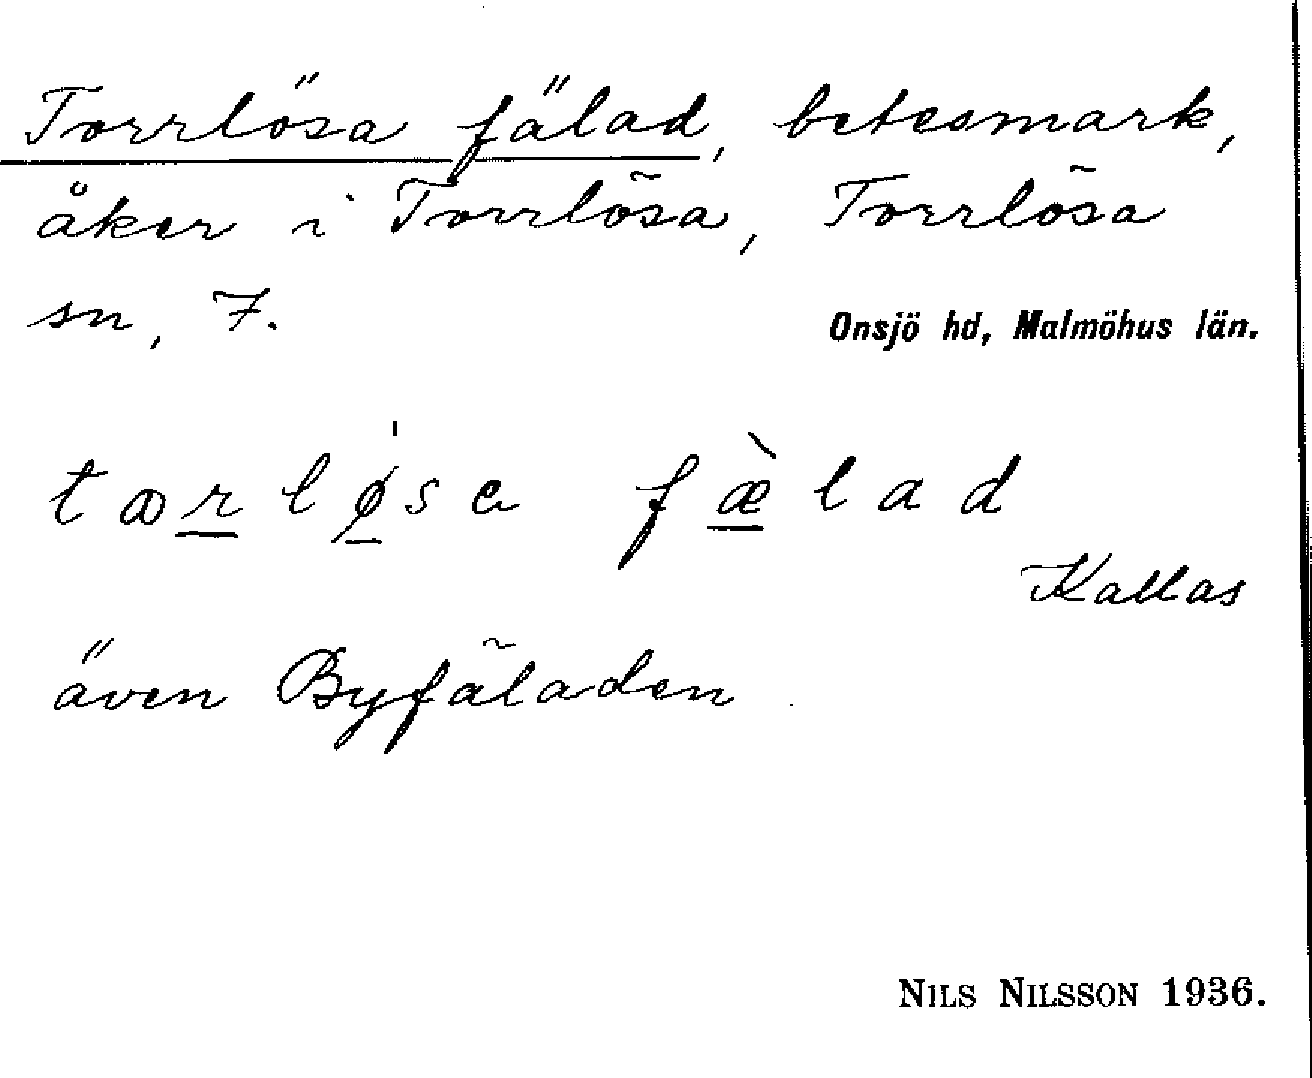 Torrlösa fälad, betesmark,
åker i Torrlösa, Torrlösa
sn, 7.
Onsjö hd, Malmöhus län.
fælad
Kallas
även Byfäladen
NILS NILSSON 1936.